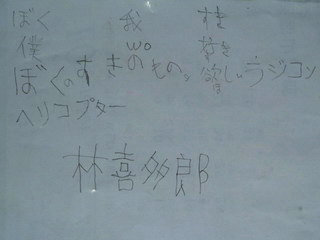 ぼく 我 すき
僕 wo 好き
ぼくのすきのもの。欲しいラジコン
ヘリコプター
林喜多郎